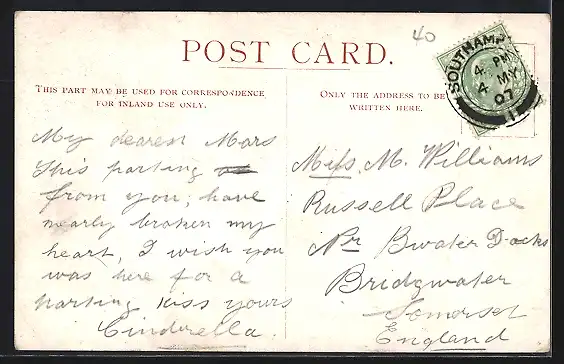 POST CARD.
40
THIS PART MAY BE USED FOR CORRESPONDENCE
FOR INLAND USE ONLY.
ONLY THE ADDRESS TO BE
WRITTEN HERE.
SOUTHAMP
4 PM
4 MY
07
11
My dearest Mars
This parting
from you, have
nearly broken my
heart, I wish you
was here for a
parting kiss yours
Cinderella.
Miss M. Williams
Russell Place
Nr Bwater Docks
Bridgwater
Somerset
England